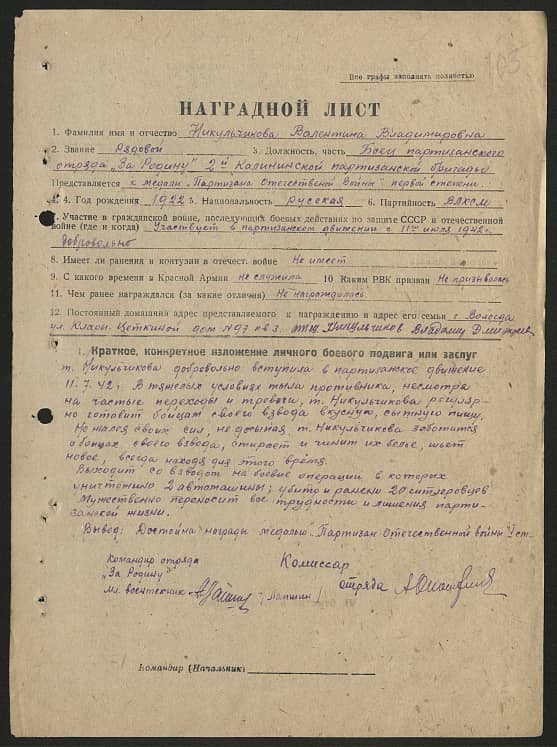 105
Все графы заполнять полностью
НАГРАДНОЙ ЛИСТ
1. Фамилия имя и отчество Никульчикова Валентина Владимировна
2. Звание Рядовой 3. Должность, часть Боец партизанского
отряда „За Родину" 2й Калининской партизанской бригады
Представляется к медали „Партизана Отечественной Войны" первой степени.
4. Год рождения 1922 5. Национальность русская 6. Партийность ВЛКСМ
7. Участие в гражданской войне, последующих боевых действиях по защите СССР и отечественной
войне (где и когда) Участвует в партизанском движении с 11го июля 1942 г.
добровольно
8. Имеет ли ранения и контузии в отечест. войне Не имеет
9. С какого времени в Красной Армии не служила 10 Каким РВК призван Не призывалась
11. Чем ранее награждался (за какие отличия) Не награждалась
12. Постоянный домашний адрес представляемого к награждению и адрес его семьи г. Вологда
ул. Клары Цеткиной дом №97 кв 3. Никульчиков Владимир Дмитриев
1. Краткое, конкретное изложение личного боевого подвига или заслуг
т. Никульчикова добровольно вступила в партизанское движение
11.7.42 г. В тяжелых условиях тыла противника, несмотря
на частые переходы и тревоги, т. Никульчикова регуляр-
но готовит бойцам своего взвода вкусную, сытную пищу.
Не жалея своих сил, не досыпая, т. Никульчикова заботится
о бойцах своего взвода, стирает и чинит их белье, шьет
новое, всегда находя для этого время.
Выходит со взводом на боевые операции в которых
уничтожено 2 автомашины; убито и ранено 20 гитлеровцев
Мужественно переносит все трудности и лишения парти-
занской жизни.
Вывод: Достойна награды медалью „Партизан Отечественной войны" I ст.
Командир отряда Комиссар
„За Родину" отряда
мл. воентехник / Лапшин /
Командир (Начальник)